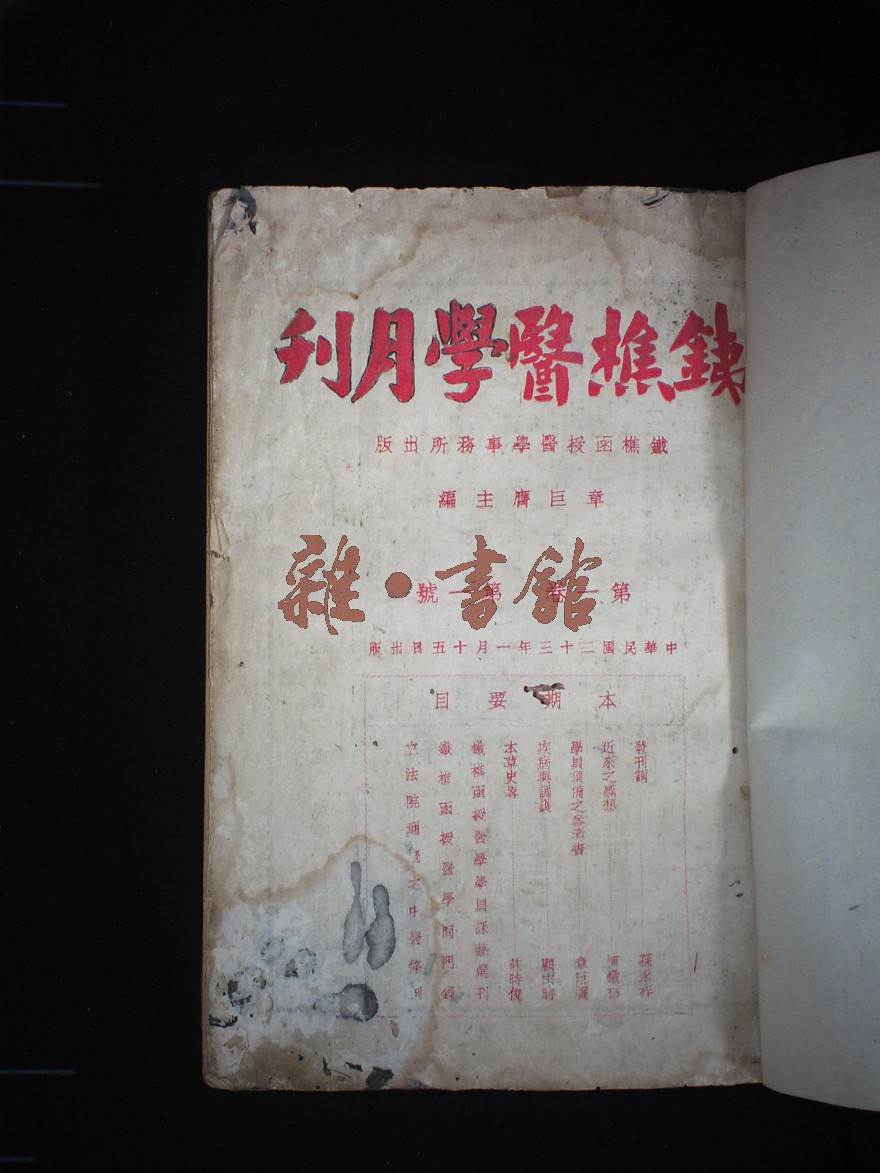 鐵樵醫學月刊
鐵樵函授醫學事務所出版
章巨膺主編
第一卷 第一號
雜·書館
中華民國二十三年一月十五日出版
本期要目
發刊詞 孫永祚
近來之感想
學員須備之參考書 章巨膺
疾病與調護 顧雨時
本草史略 莊時俊
鐵樵函授醫學學員課藝彙刊
鐵樵函授醫學同門錄
立法院通過之中醫條例